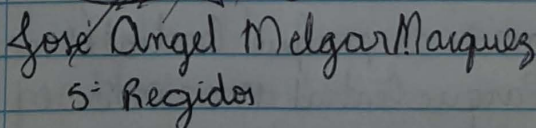 José Angel Melgar Marques
5º Regidor